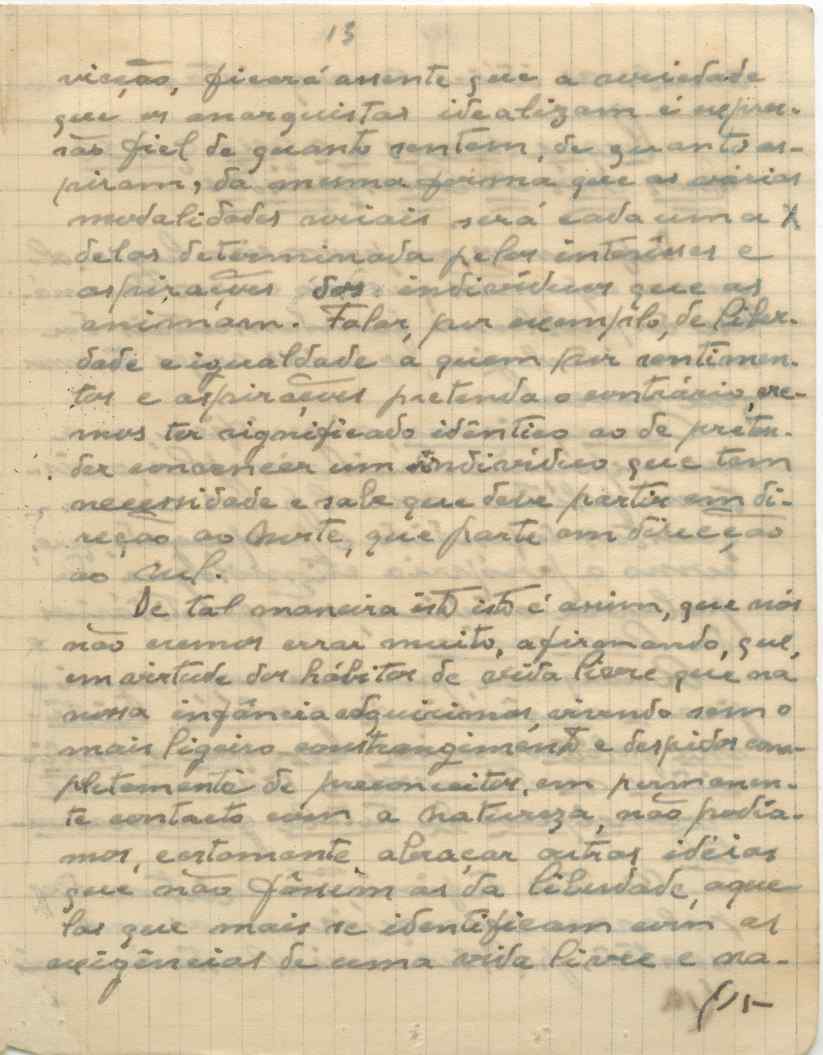 13
vicção, ficará assente que a sociedade
que os anarquistas idealizam é expres-
são fiel de quanto sentem, de quanto as-
piram, da mesma forma que as várias
modalidades sociais será cada uma
delas determinada pelos interêsses e
aspirações dos indivíduos que as
animam. Falar, por exemplo, de liber-
dade e igualdade a quem por sentimen-
tos e aspirações pretenda o contrário, cre-
mos ter significado idêntico ao de preten-
der convencer um indivíduo que tem
necessidade e sabe que deve partir em di-
recção ao Norte, que parta em direcção
ao Sul.
De tal maneira isto isto é assim, que nós
não cremos errar muito, afirmando, que,
em virtude dos hábitos de vida livre que na
nossa infância adquirimos, vivendo sem o
mais ligeiro constrangimento e despidos com-
pletamente de preconceitos, em permanen-
te contacto com a Natureza, não podía-
mos, certamente, abraçar outras idéias
que não fôssem as da liberdade, aque
las que mais se identificam com as
exigências de uma vida livre e na-